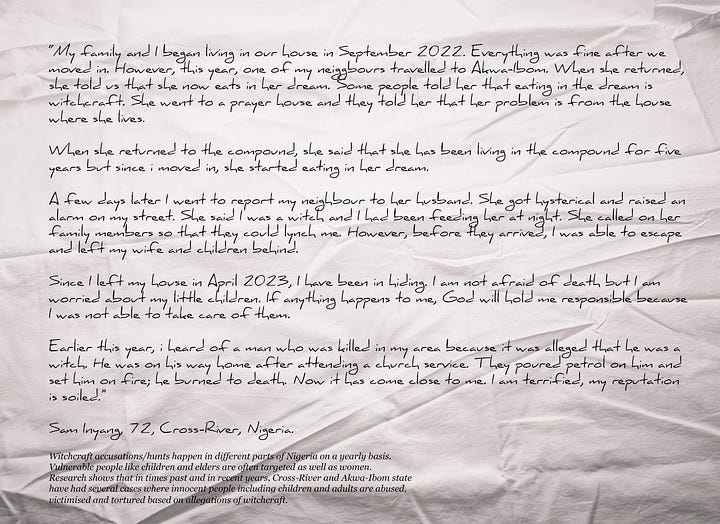 "My family and I began living in our house in September 2022. Everything was fine after we
moved in. However, this year, one of my neiggbours travelled to Akwa-Ibom. When she returned,
she told us that she now eats in her dream. Some people told her that eating in the dream is
witchcraft. She went to a prayer house and they told her that her problem is from the house
where she lives.
When she returned to the compound, she said that she has been living in the compound for five
years but since i moved in, she started eating in her dream.
A few days later I went to report my neighbour to her husband. She got hysterical and raised an
alarm on my street. She said I was a witch and I had been feeding her at night. She called on her
family members so that they could lynch me. However, before they arrived, I was able to escape
and left my wife and children behind.
Since I left my house in April 2023, I have been in hiding. I am not afraid of death but I am
worried about my little children. If anything happens to me, God will hold me responsible because
I was not able to take care of them.
Earlier this year, i heard of a man who was killed in my area because it was alleged that he was a
witch. He was on his way home after attending a church service. They poured petrol on him and
set him on fire; he burned to death. Now it has come close to me. I am terrified, my reputation
is soiled."
Sam Inyang, 72, Cross-River, Nigeria.
Witchcraft accusations/hunts happen in different parts of Nigeria on a yearly basis.
Vulnerable people like children and elders are often targeted as well as women.
Research shows that in times past and in recent years, Cross-River and Akwa-Ibom state
have had several cases where innocent people including children and adults are abused,
victimised and tortured based on allegations of witchcraft.